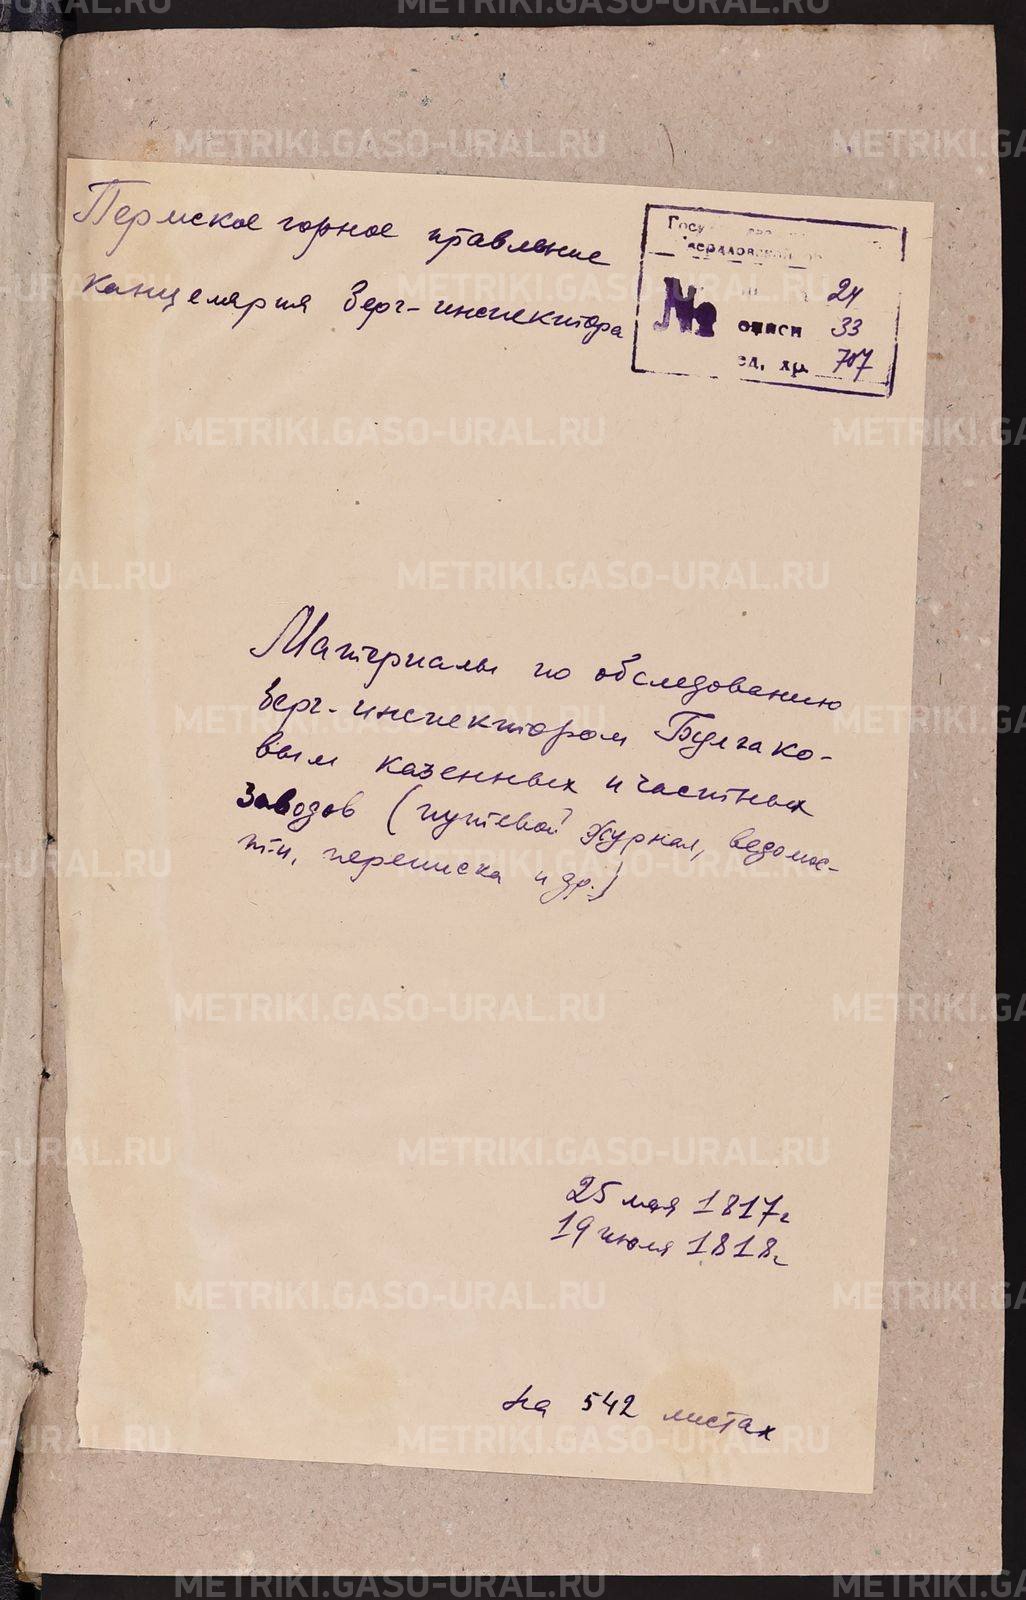 Пермское горное правление
Канцелярия Берг-инспектора
№
24
описи 33
ед. хр. 707
Материалы по обследованию
Берг-инспектором Булгако-
вым казенных и частных
заводов (путевой журнал, ведомос-
ти, переписка и др.)
25 мая 1817г
19 июля 1818г
на 542 листах
METRIKI.GASO-URAL.RU